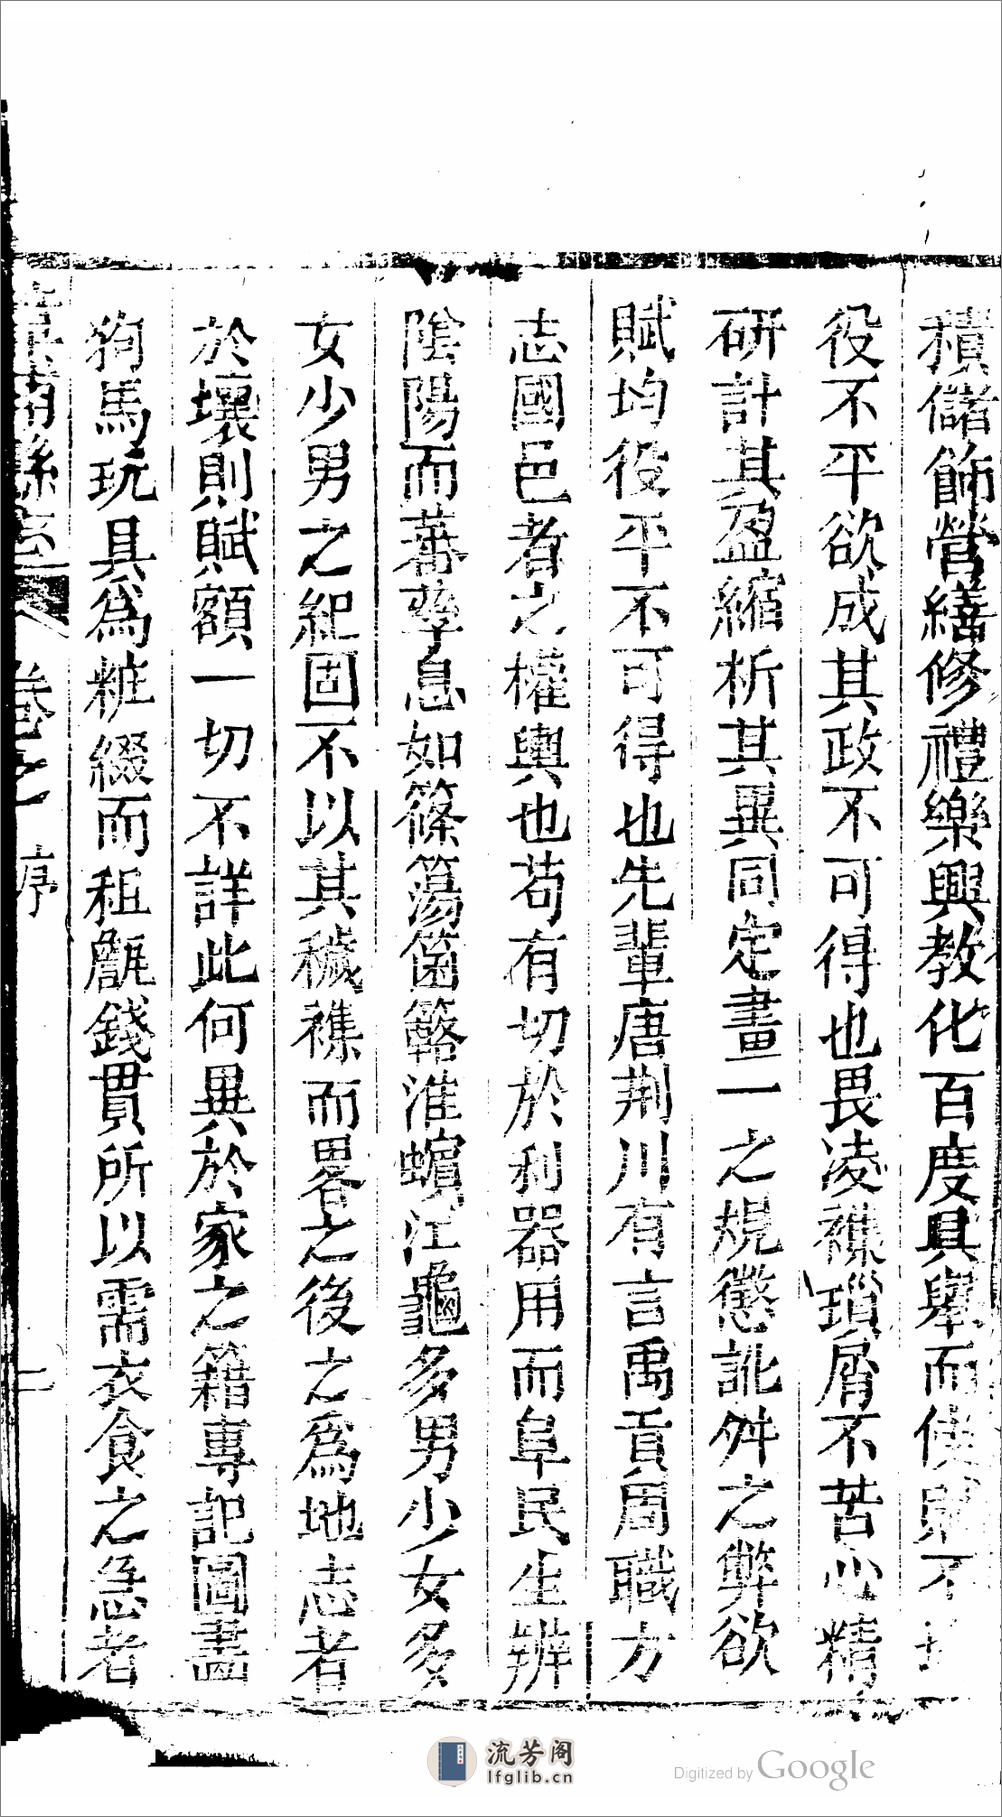 積儲飾營繕修禮樂興教化百度具舉而使賦不
役不平欲成其政不可得也畏凌襍瑣屑不苦心精
研計其盈縮析其異同定畫一之規懲訛舛之弊欲
賦均役平不可得也先輩唐荆川有言禹貢周職方
志國邑者之權輿也苟有切於利器用而阜民生辨
陰陽而蕃孳息如篠簜箘簵淮蠙江龜多男少女多
女少男之紀固不以其穢襍而畧之後之爲地志者
於壤則賦額一切不詳此何異於家之籍專記圖畫
狗馬玩具爲粧綴而租甔錢貫所以需衣食之急者
縣志
卷之
序
二
流芳阁
lfglib.cn
Digitized by Google